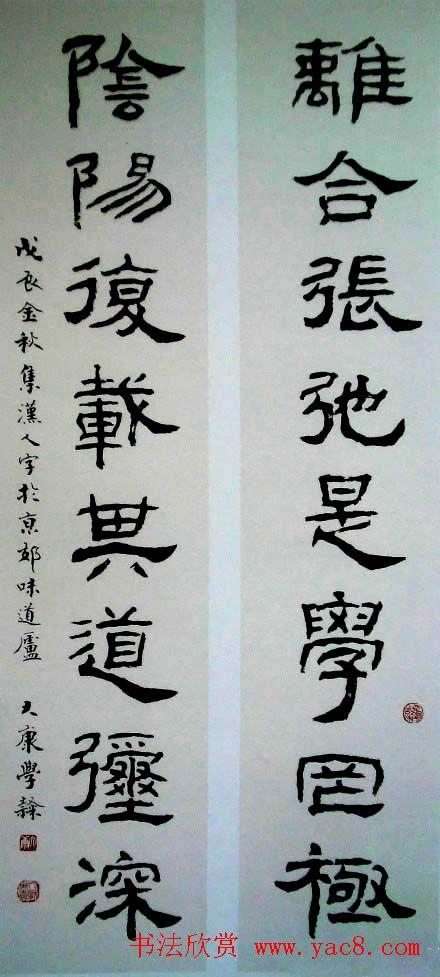 離合張弛是學罔極
陰陽復載其道彌深
戊辰金秋集漢人字於京郊味道廬 大康學隸
书法欣赏 www.yac8.com